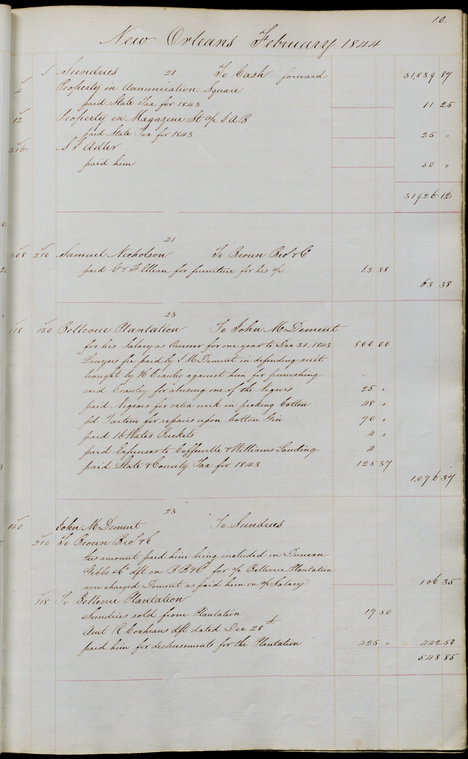 10.
New Orleans February 1844
1 Sundries 21 To Cash forward 31,839 87
Property on Annunciation Square
paid State Tax for 1843 11 25
12 Property on Magazine St
paid State Tax for 1843 25 "
Adler
paid him 50 "
31926.12
21
210 Samuel Nicholson To Brown Bros & Co
paid for furniture for his 63 38
63 38
23
118 150 Bellevue Plantation To John McDement
for his Salary as Overseer for one year to Dec 31. 1843 800 00
Lawyers fee paid by J McDement in defending suit
brought by H Crawley against him for punishing
said Crawley for abusing one of the Negros 25 "
paid Negros for extra work in picking Cotton 48 "
pd for repairs upon Cotton Gin 70 "
paid 16 Water Buckets 4 "
paid Expenses to Coffeeville & Williams Landing 4
paid State & County Tax for 1843 125.37
1,076 37
23
150 John McDement To Sundries
210 To Brown Bros & Co
this amount paid him being included in Duncan
Gibbs & Co dft on for Bellevue Plantation
now charged Dement as paid him on Salary 106 35
118 To Bellevue Plantation
Sundries sold from Plantation 17.50
Amt R Cochrans dft dated Dec 28th
paid him for disbursements for the Plantation 425 " 442.50
548.85